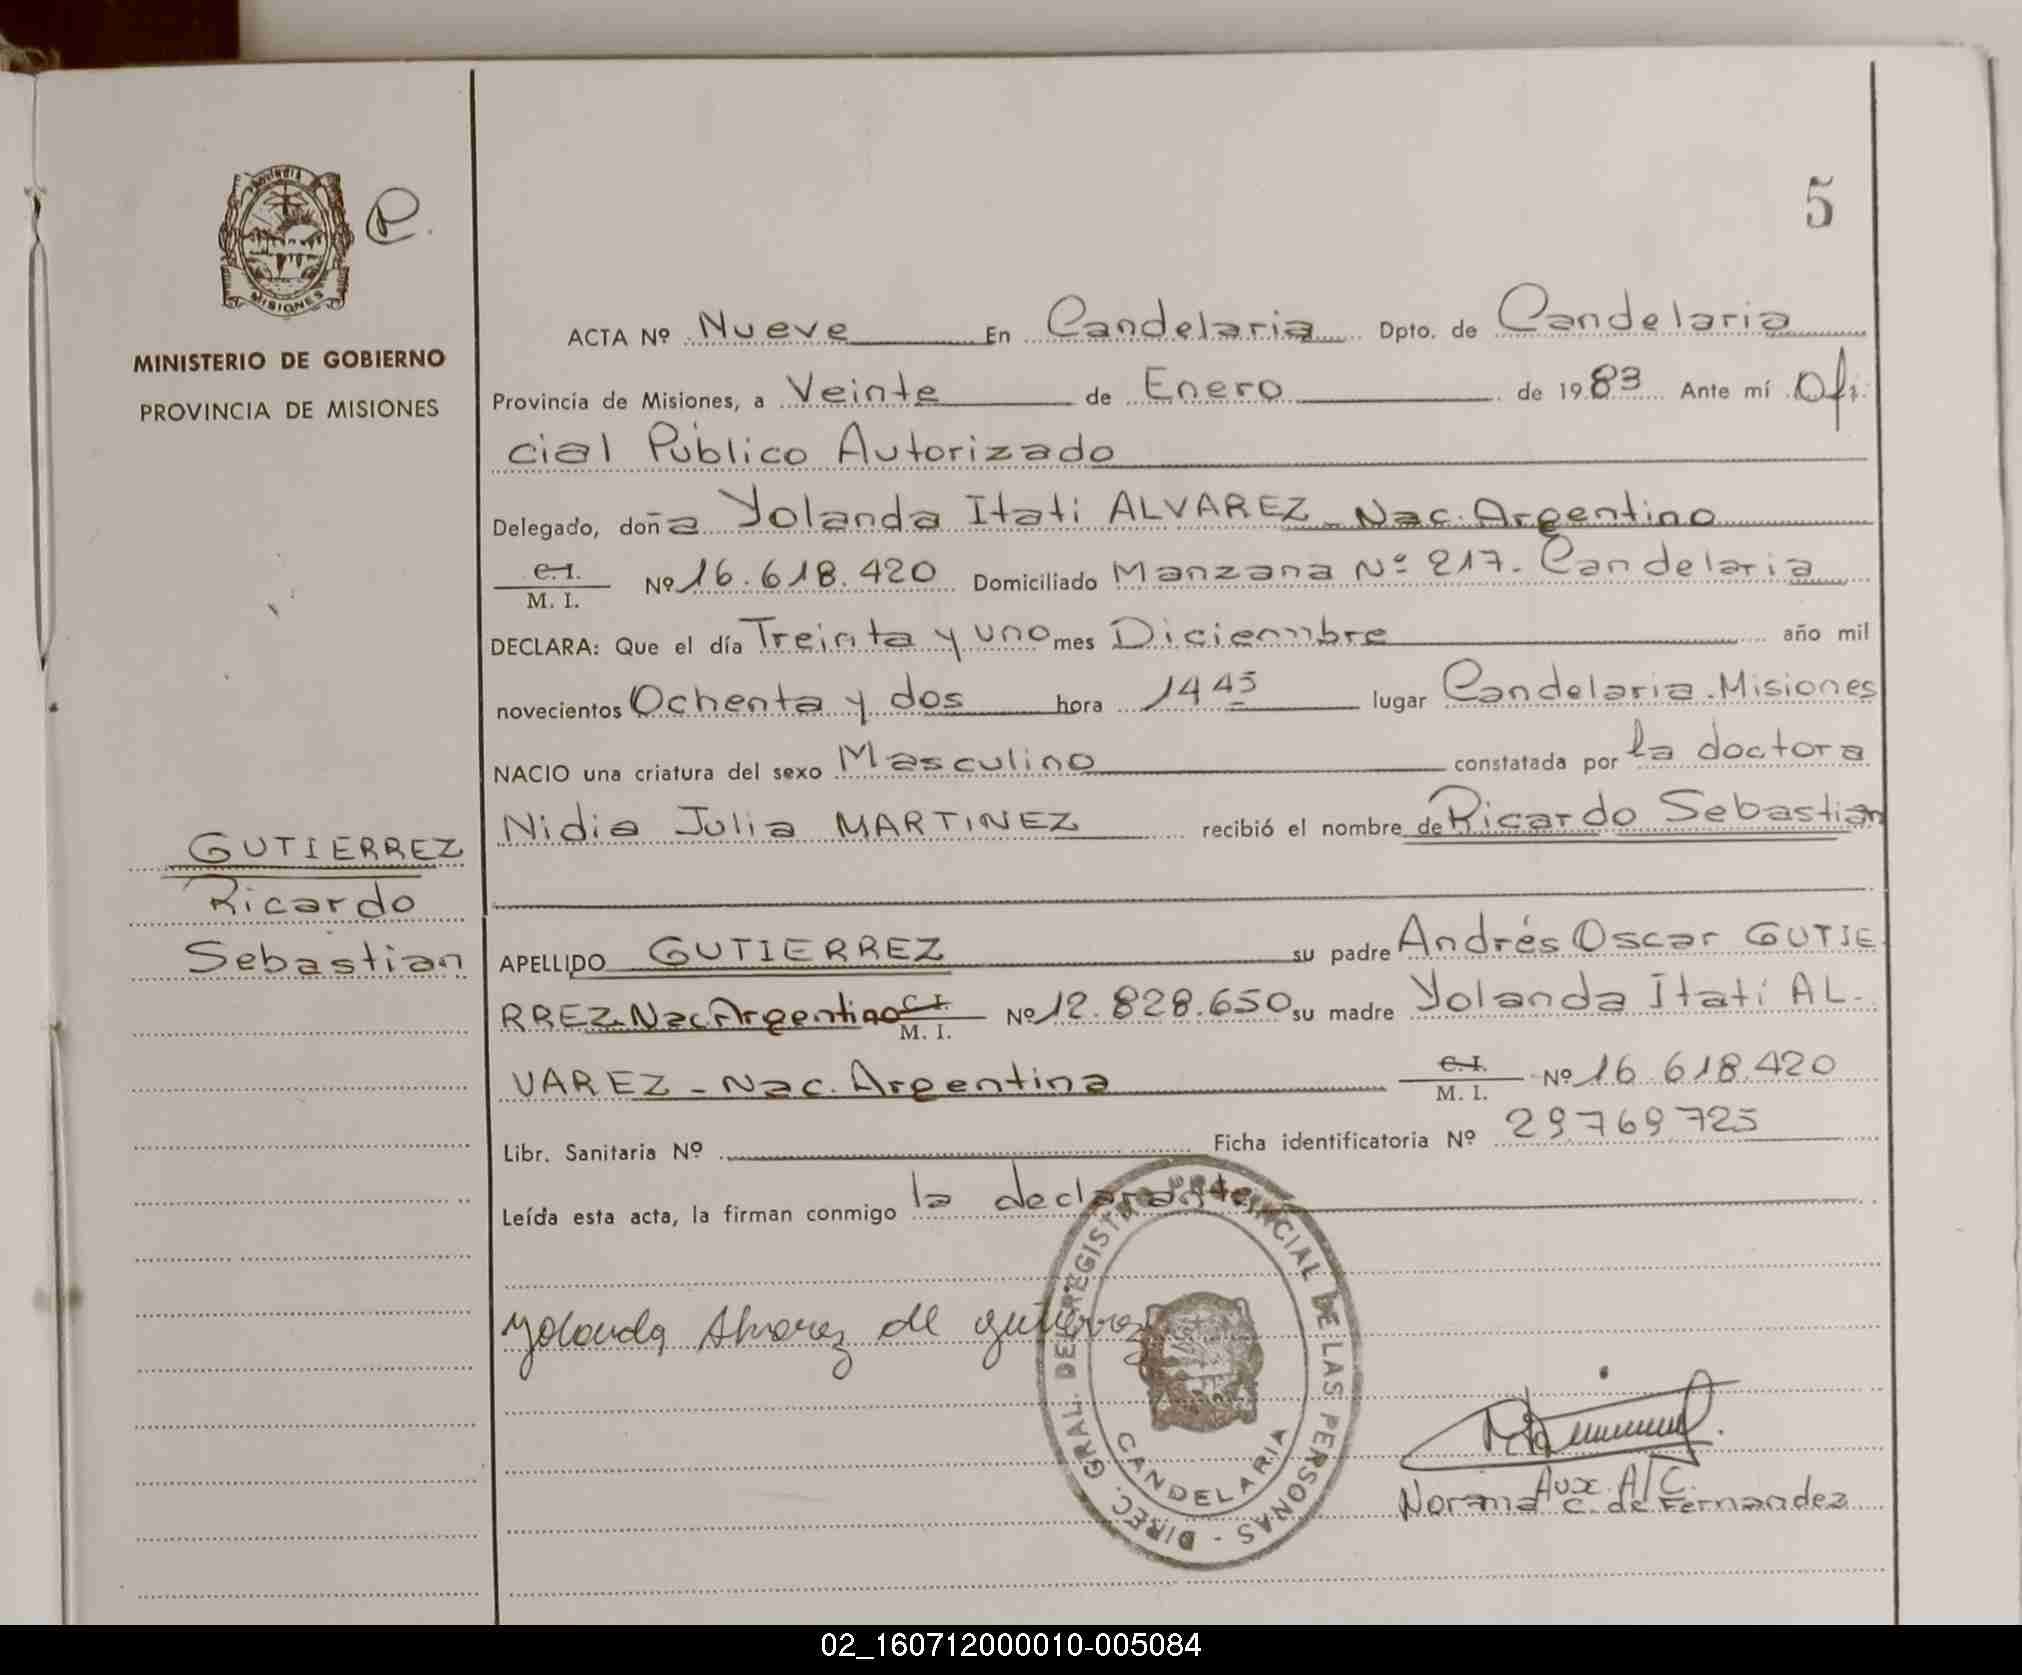 5
PROVINCIA
MISIONES
MINISTERIO DE GOBIERNO
PROVINCIA DE MISIONES
ACTA Nº Nueve En Candelaria Dpto. de Candelaria
Provincia de Misiones, a Veinte de Enero de 1983 Ante mí Ofi
cial Público Autorizado
Delegado, doña Yolanda Itati ALVAREZ - Nac. Argentino
C.I. M. I. Nº 16.618.420 Domiciliado Manzana Nº 217. Candelaria
DECLARA: Que el día Treinta y uno mes Diciembre año mil
novecientos Ochenta y dos hora 14 45 lugar Candelaria. Misiones
NACIO una criatura del sexo Masculino constatada por la doctora
Nidia Julia MARTINEZ recibió el nombre de Ricardo Sebastian
GUTIERREZ
Ricardo
Sebastian
APELLIDO GUTIERREZ su padre Andrés Oscar GUTIE
RREZ. Nac. Argentino C.I. M. I. Nº 12.828.650 su madre Yolanda Itatí AL-
VAREZ - Nac. Argentina C.I. M. I. Nº 16 618.420
Libr. Sanitaria Nº Ficha identificatoria Nº 29769725
Leída esta acta, la firman conmigo la declarante
Yolanda Alvarez de Gutierrez
DIREC. GRAL. DEL REGISTRO PROVINCIAL DE LAS PERSONAS -
CANDELARIA
Aux. A/C.
Norma C. de Fernandez
02_160712000010-005084